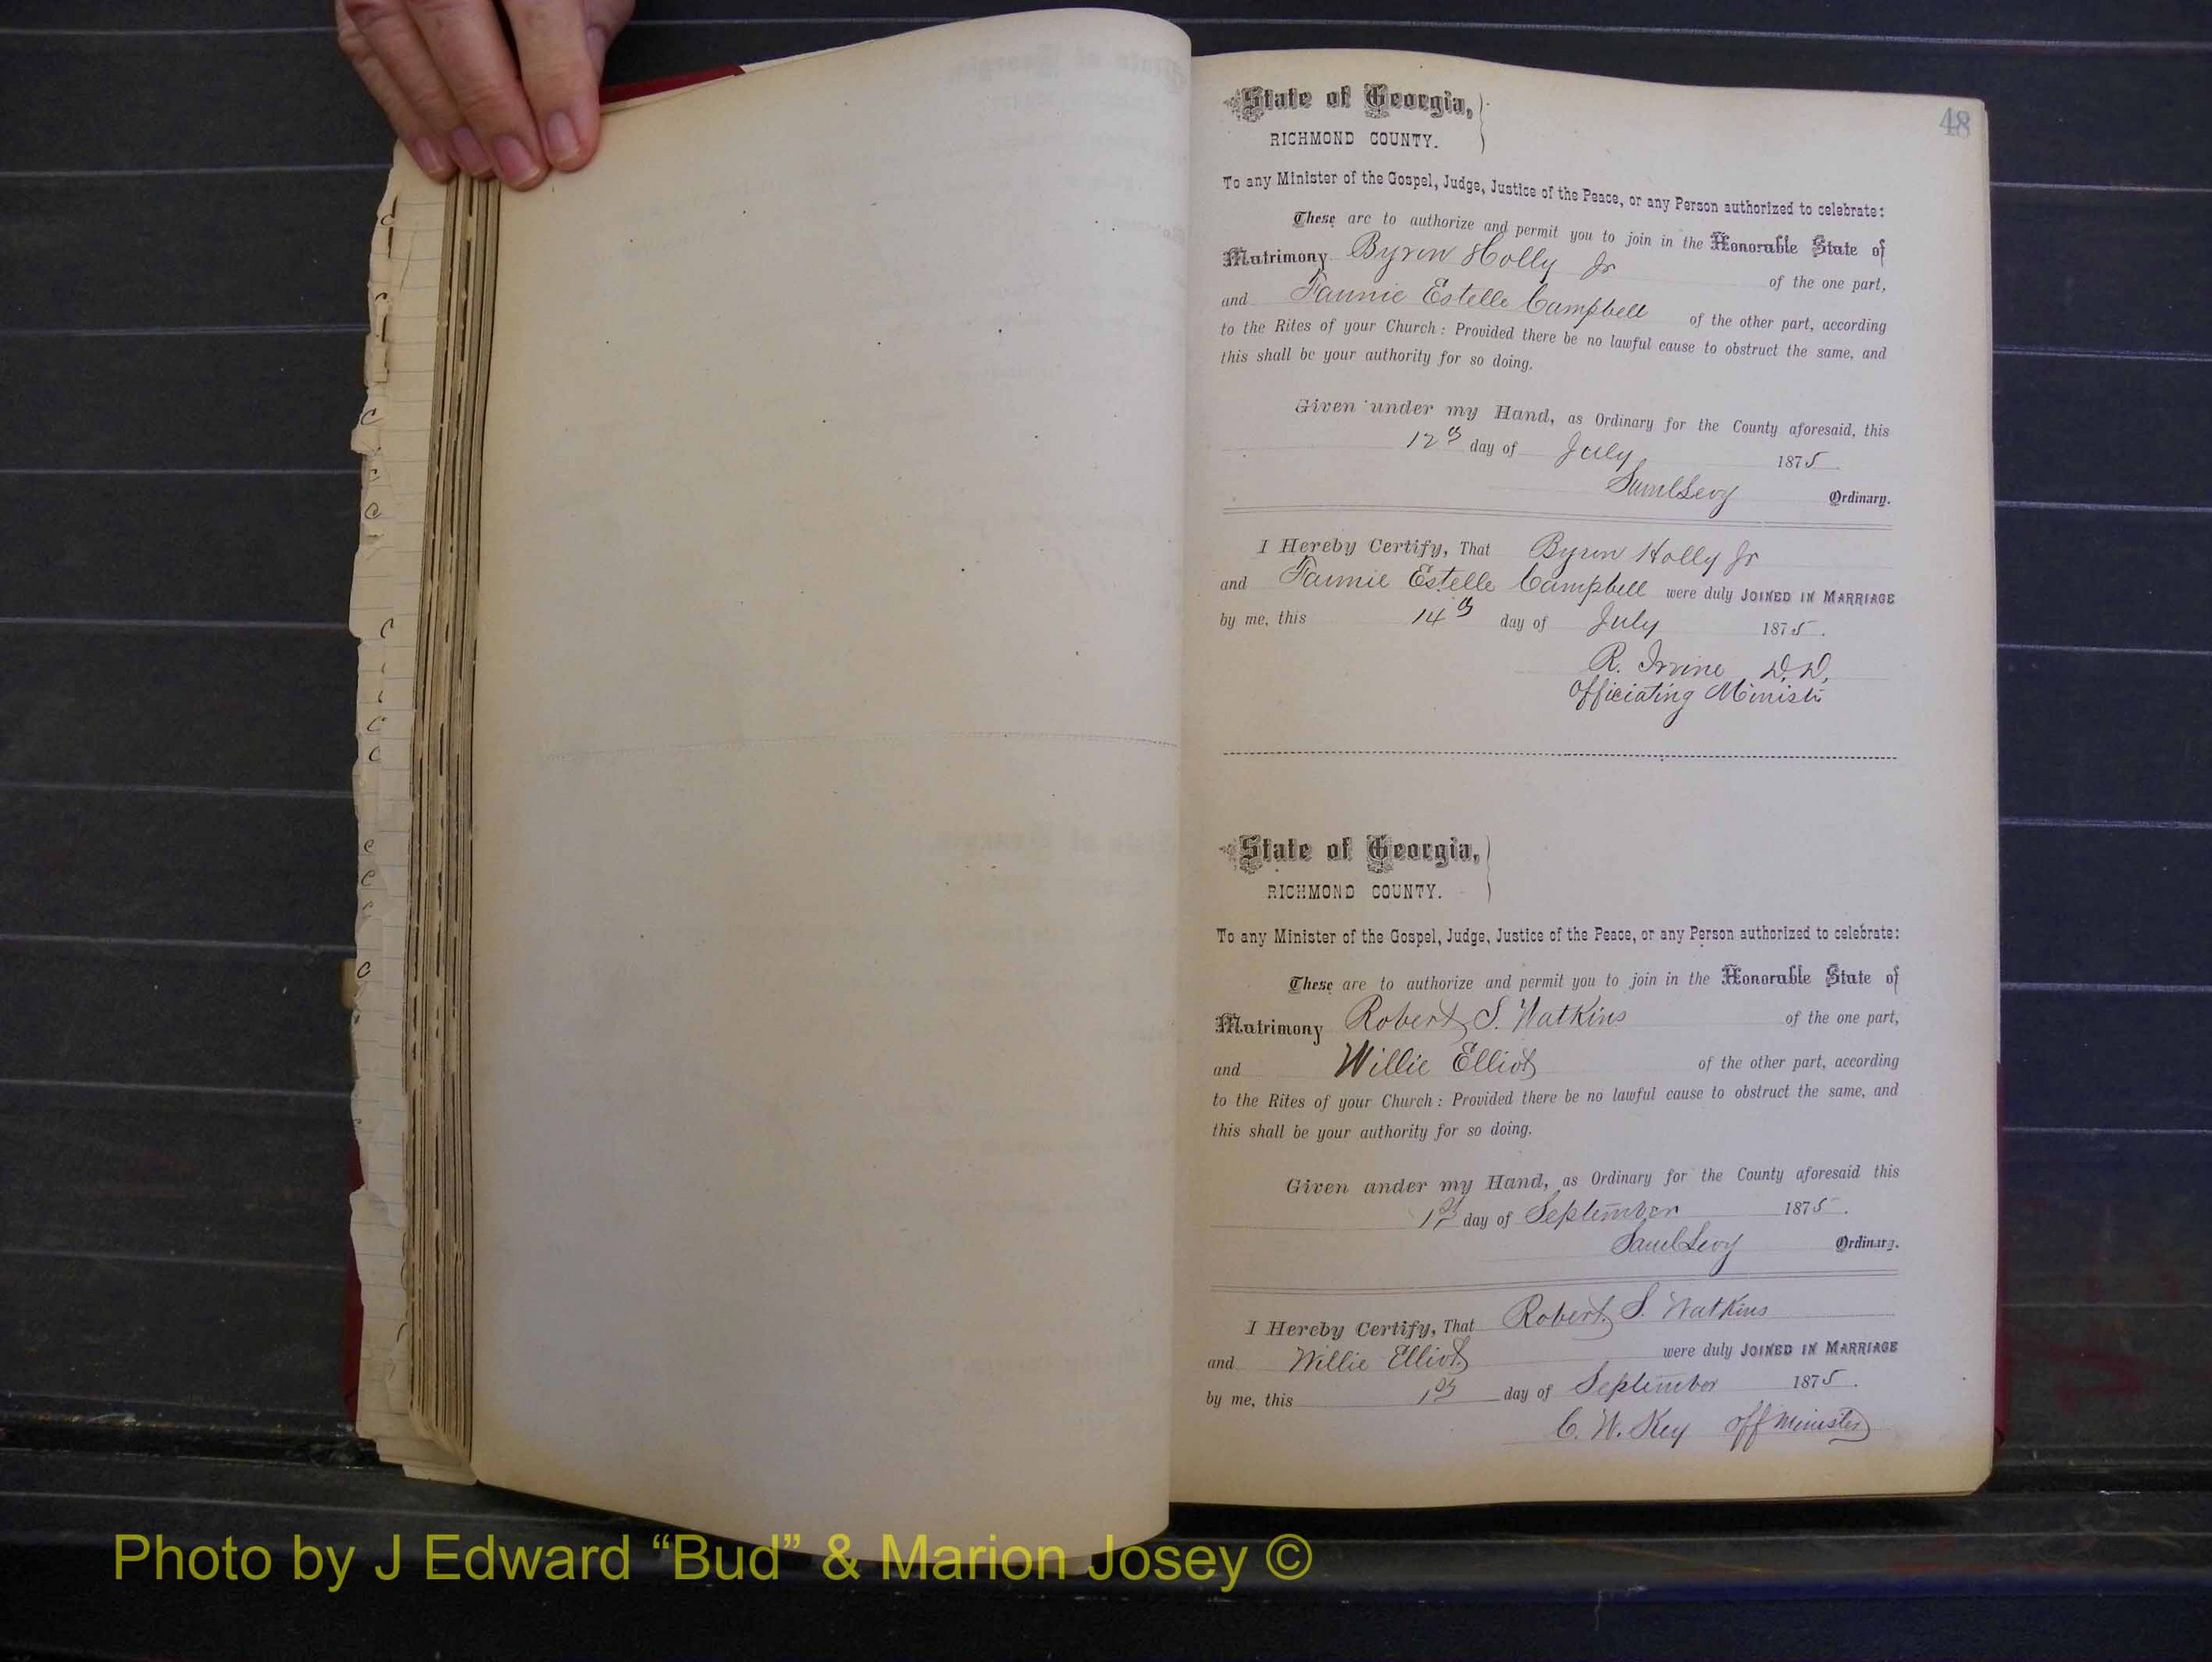 48
State of Georgia,
RICHMOND COUNTY.
To any Minister of the Gospel, Judge, Justice of the Peace, or any Person authorized to celebrate:
These are to authorize and permit you to join in the Honorable State of
Matrimony Byron Holly Jr of the one part,
and Fannie Estelle Campbell of the other part, according
to the Rites of your Church: Provided there be no lawful cause to obstruct the same, and
this shall be your authority for so doing.
Given under my Hand, as Ordinary for the County aforesaid, this
12th day of July 1875
Saml Levy Ordinary.
I Hereby Certify, That Byron Holly Jr
and Fannie Estelle Campbell were duly JOINED IN MARRIAGE
by me, this 14th day of July 1875.
R. Irvine D.D.
Officiating Ministr
State of Georgia,
RICHMOND COUNTY.
To any Minister of the Gospel, Judge, Justice of the Peace, or any Person authorized to celebrate:
These are to authorize and permit you to join in the Honorable State of
Matrimony Robert S. Watkins of the one part,
and Willie Elliot of the other part, according
to the Rites of your Church: Provided there be no lawful cause to obstruct the same, and
this shall be your authority for so doing.
Given under my Hand, as Ordinary for the County aforesaid this
1st day of September 1875.
Saml Levy Ordinary.
I Hereby Certify, That Robert S. Watkins
and Willie Elliot were duly JOINED IN MARRIAGE
by me, this 1st day of September 1875.
C. W. Key off Minister
Photo by J Edward “Bud” & Marion Josey ©